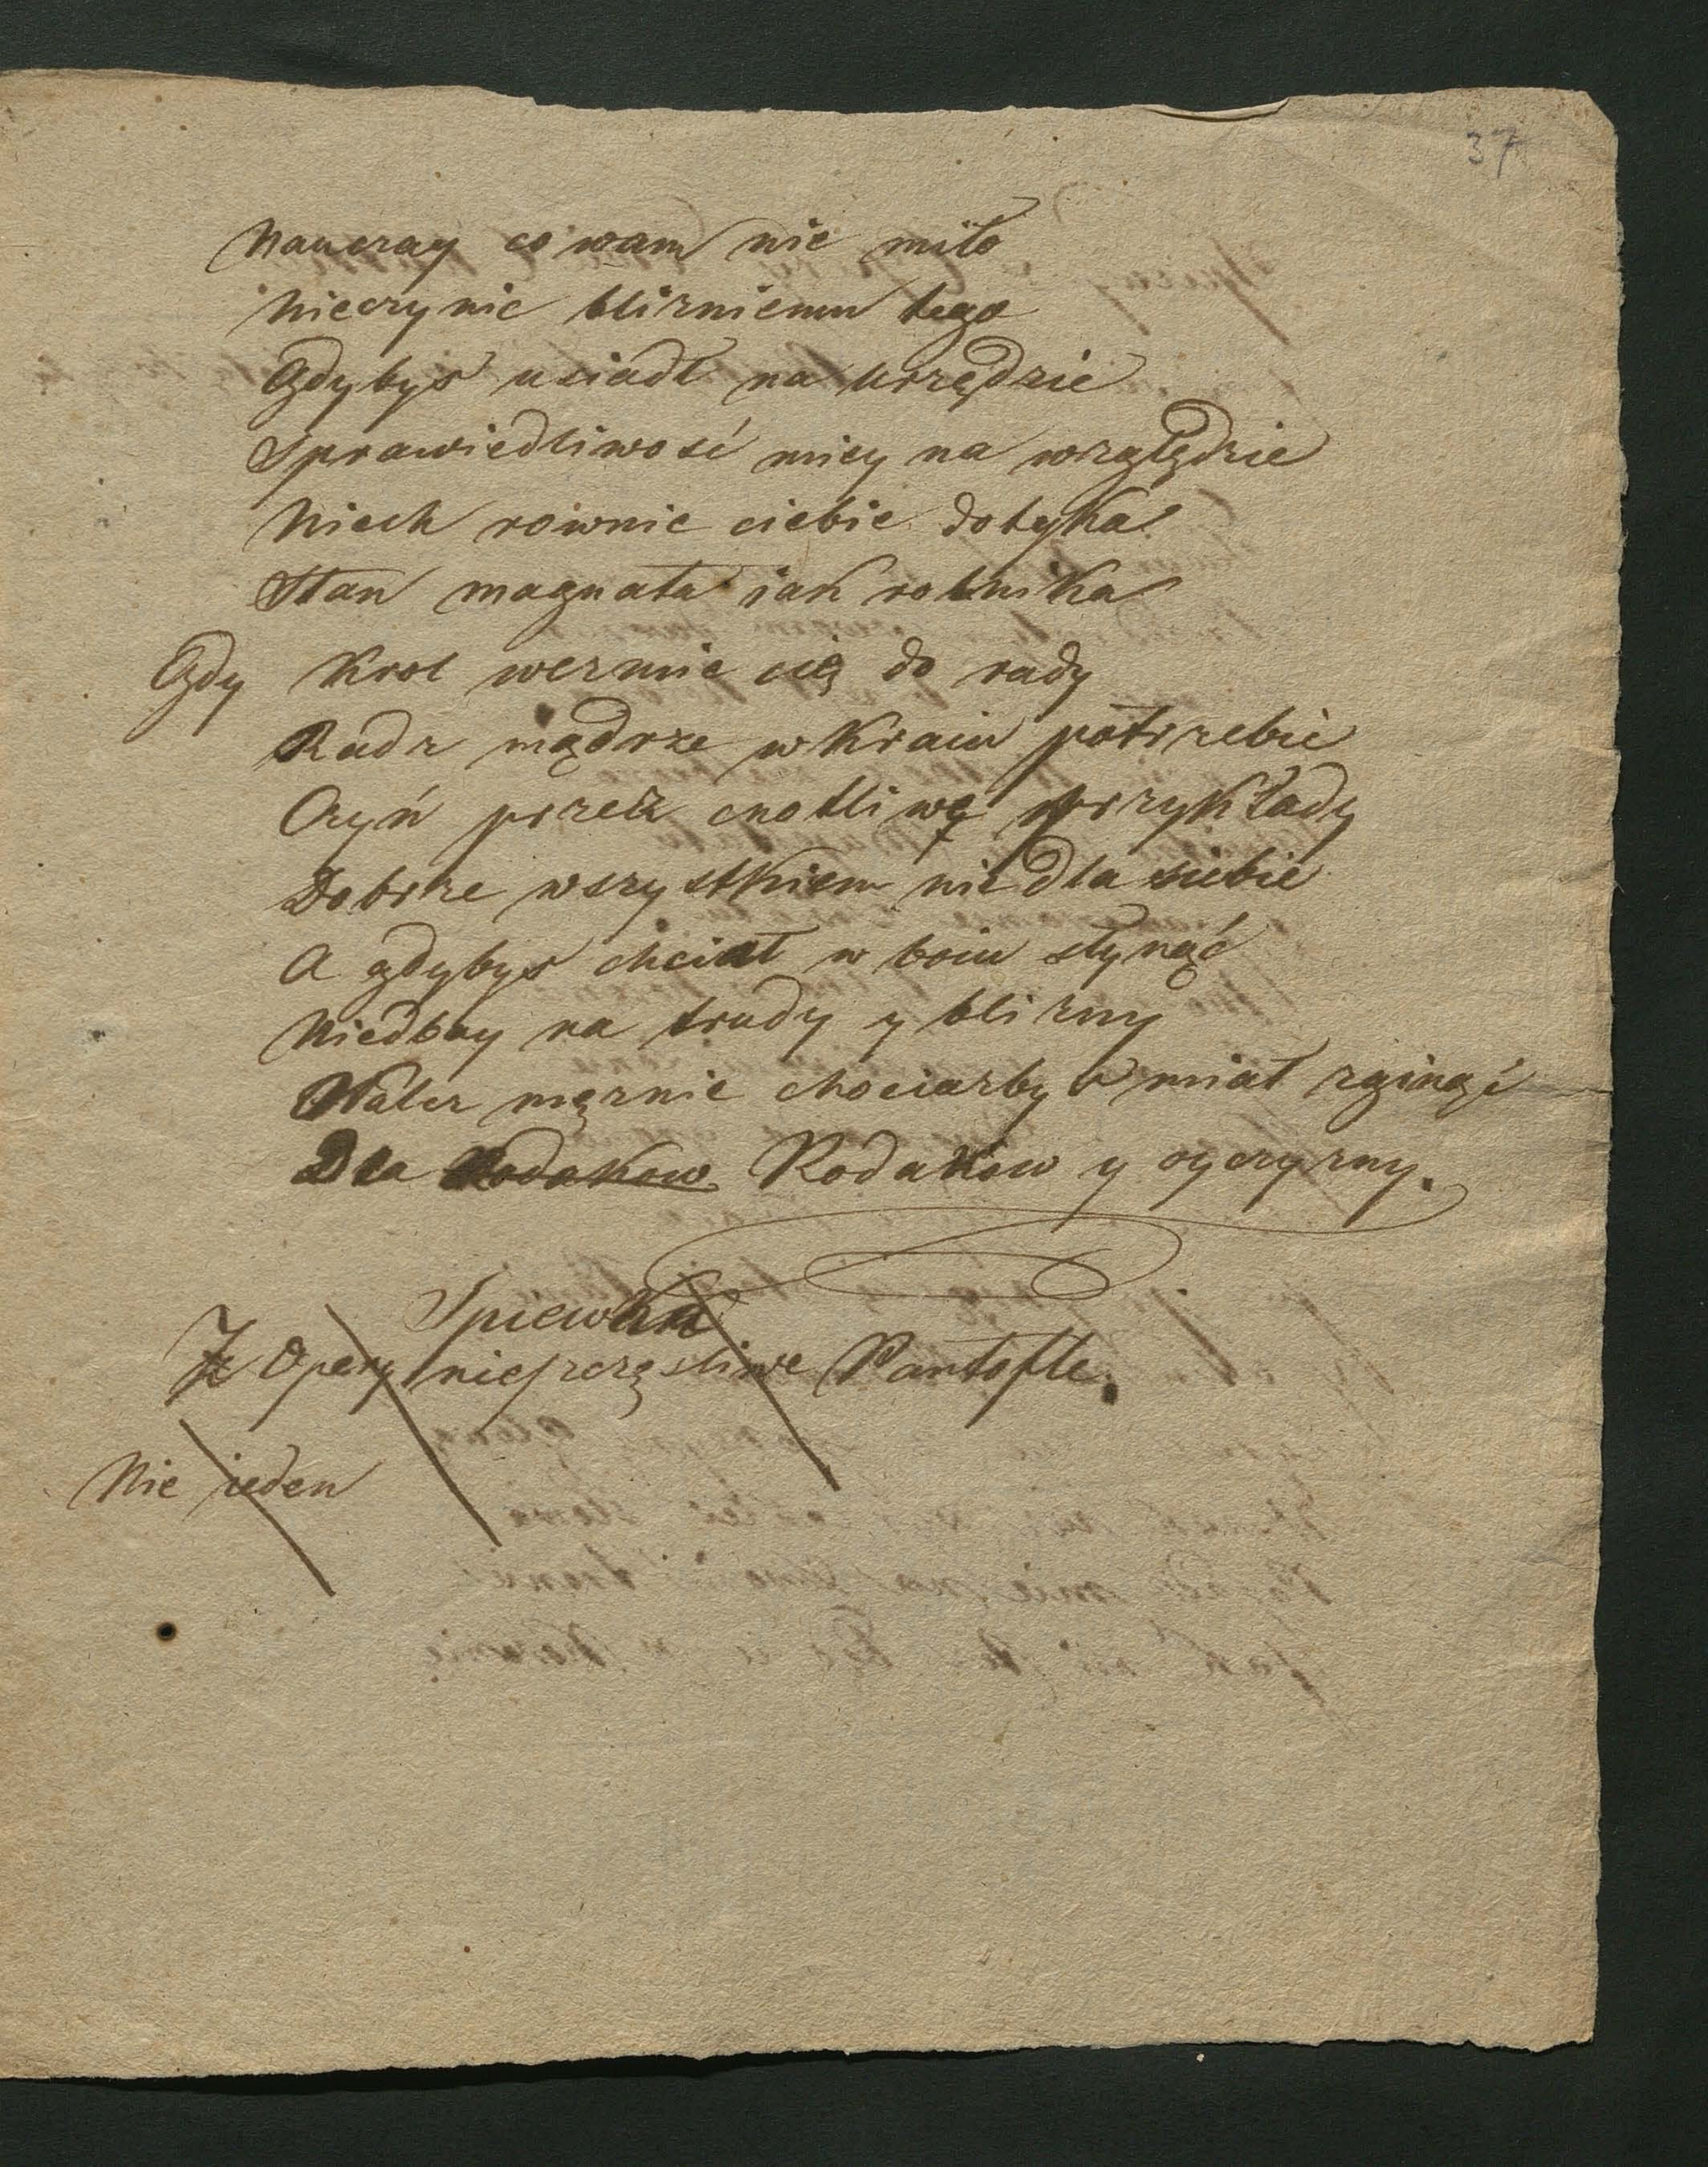 37
Nauczay co wam nie miło
Nieczynic bliżniemu tego
Gdybys usiadł na urzędzie
Sprawiedliwość miey na względzie
Niech rownie ciebie dotyka
Stan magnata iak rolnika
Gdy Krol wezmie cię do rady
Radz mądrze w Kraiu potrzebie
Czyń przez cnotliwę przykłady
Dobrze wszystkiem nie dla siebie
A gdybys chciał w boiu słynąć
Niedbay na trudy y blizny
Walcz mężnie chociażbyś miał zginąć
Dla Rodakow Rodakow y oyczyzny.
Spiewka
Z Opery nieszczęsliwe Pantofle.
Nie ieden